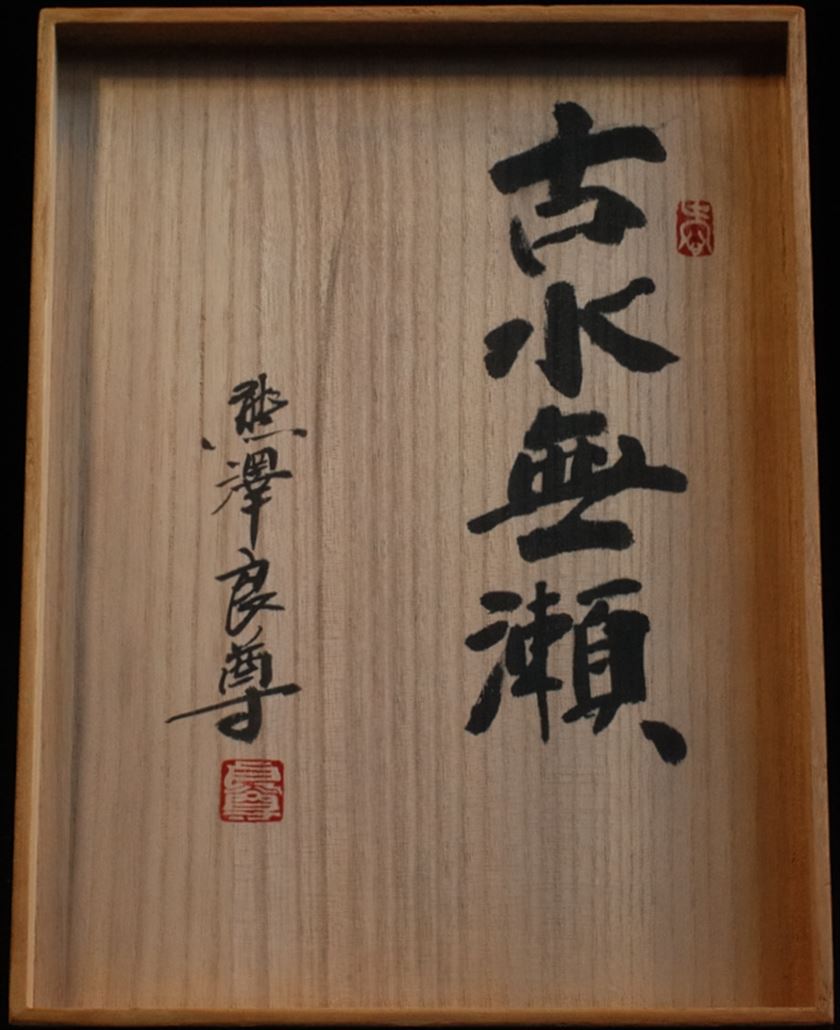 古水無瀬
熊澤良尊
良尊